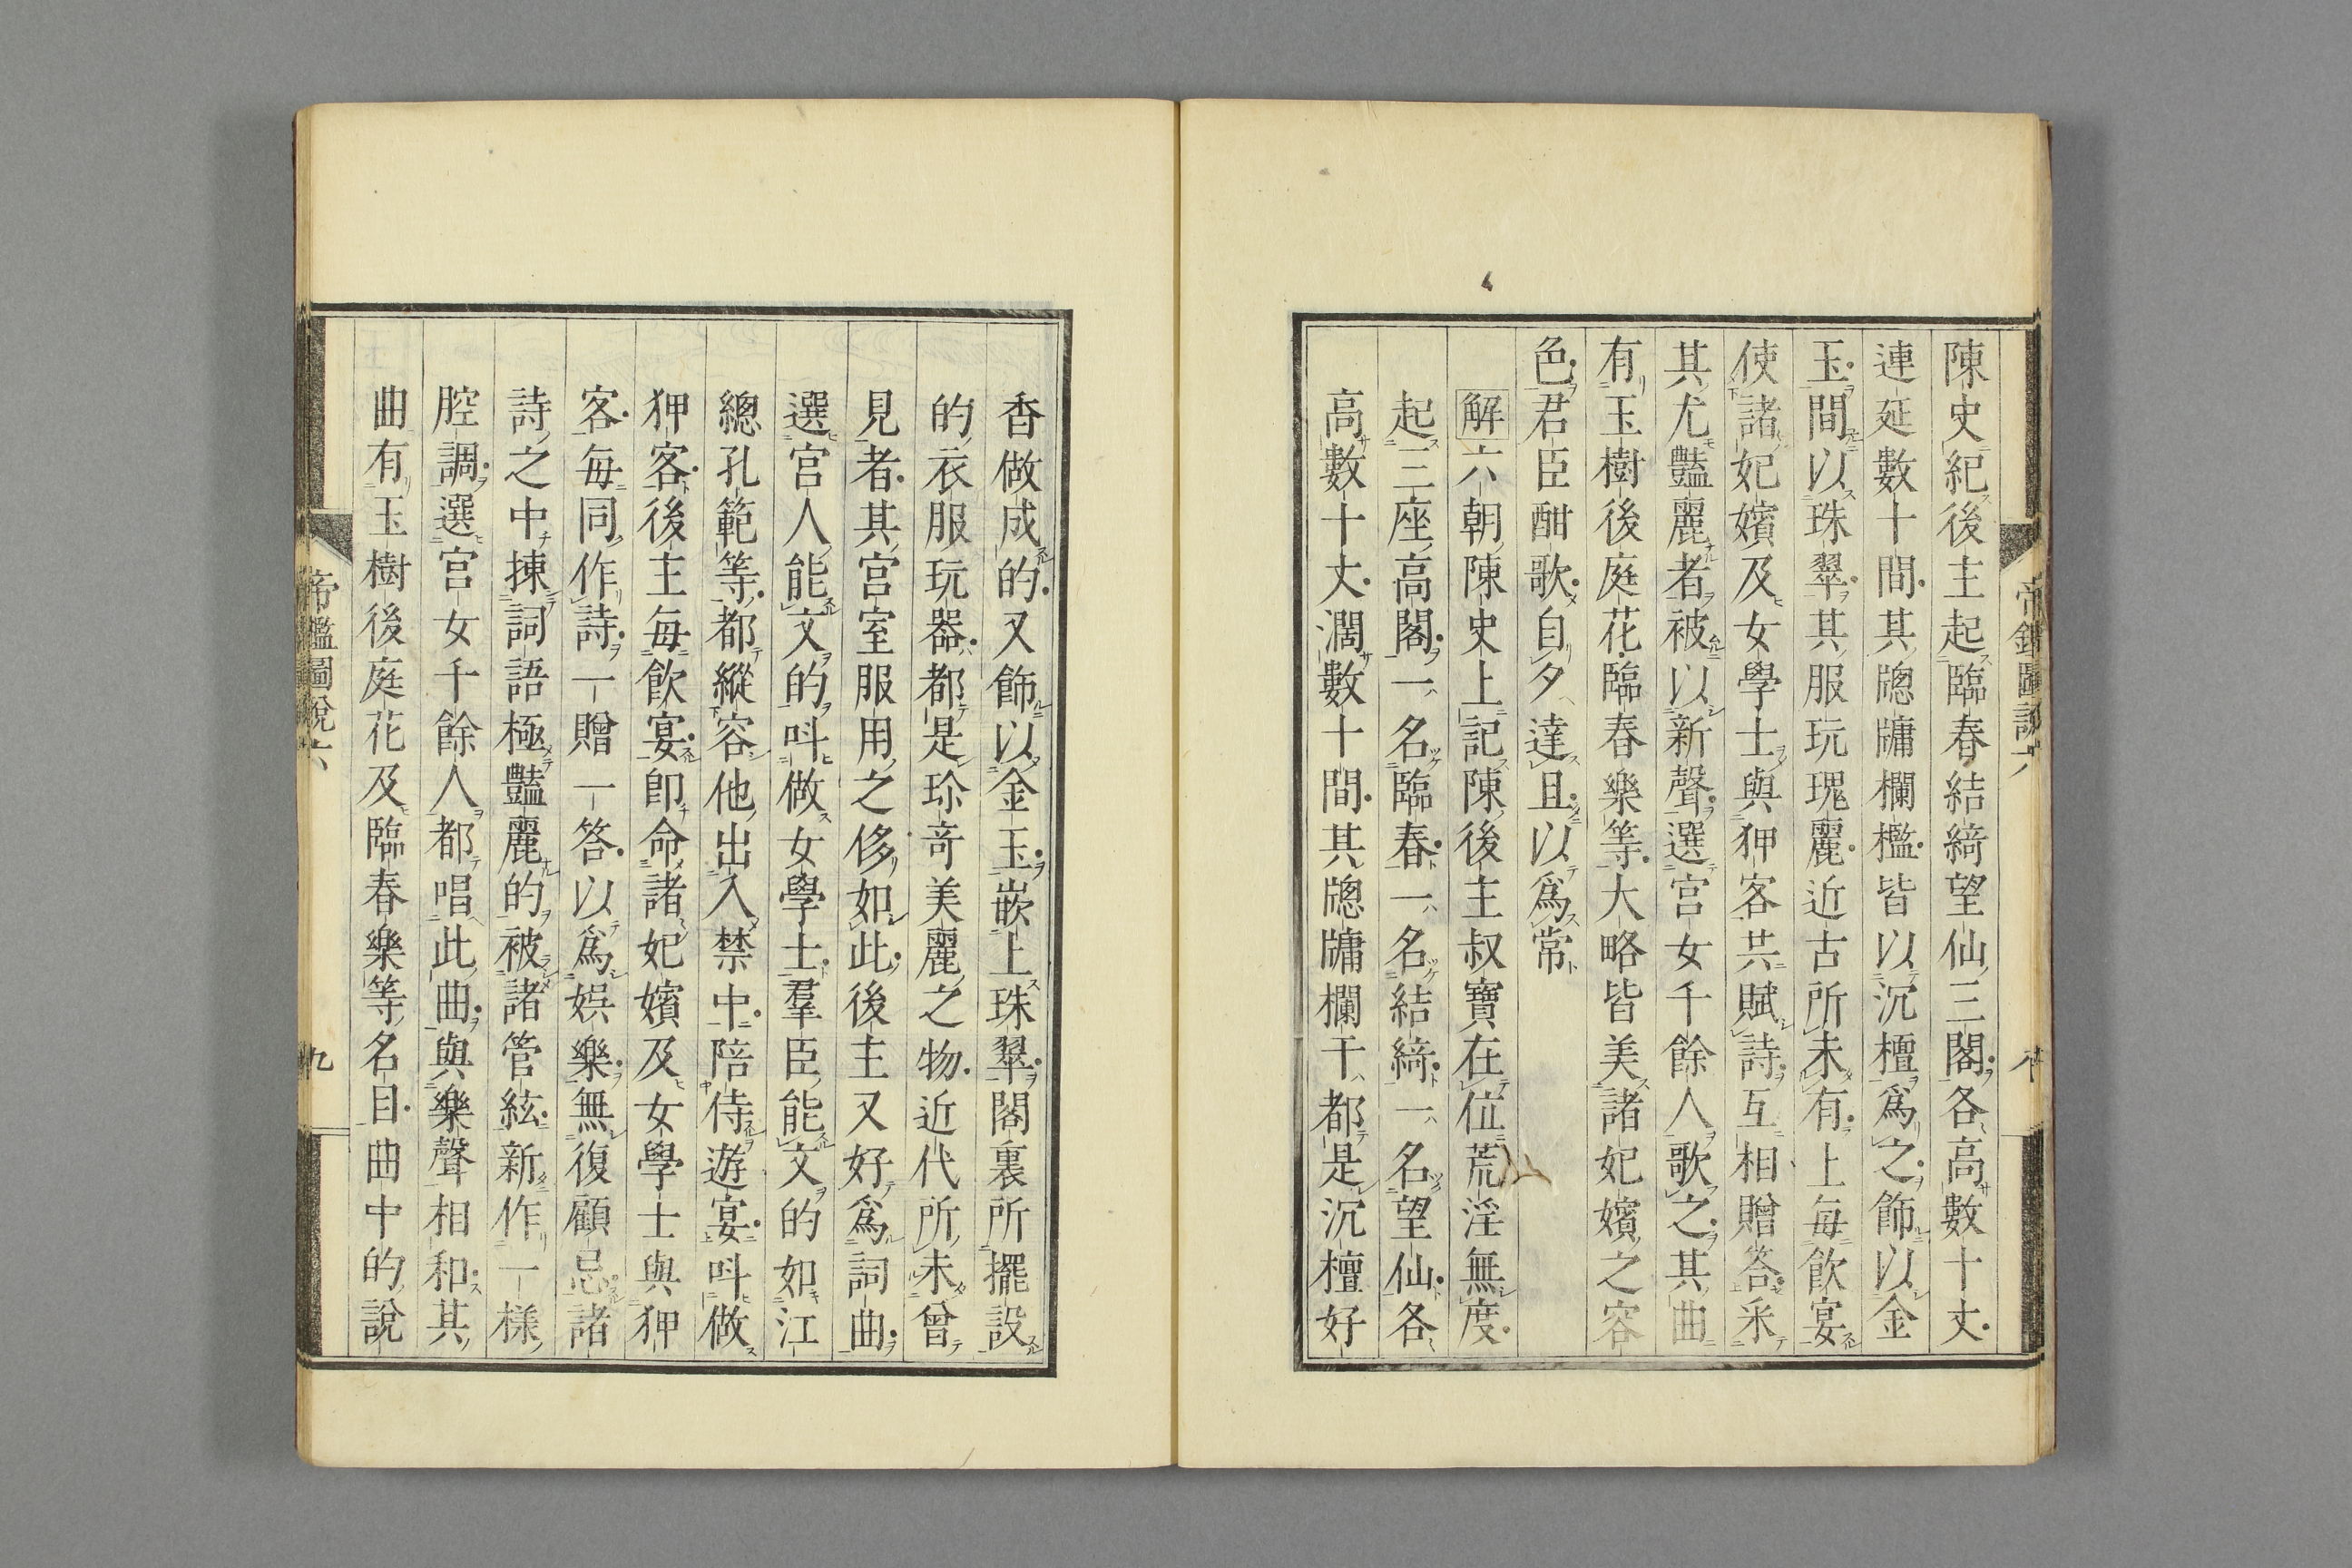 陳史紀後主起臨春結綺望仙三閣各高數十丈
連延數十間其牕牗欄檻皆以沉檀爲之飾以金
玉間以珠翠其服玩瑰麗近古所未有上每飮宴
使諸妃嬪及女學士與狎客共賦詩互相贈答采
其尤豔麗者被以新聲選宮女千餘人歌之其曲
有玉樹後庭花臨春樂等大略皆美諸妃嬪之容
色君臣酣歌自夕達旦以爲常
解六朝陳史上記陳後主叔寶在位荒淫無度
起三座高閣一名臨春一名結綺一名望仙各
高數十丈濶數十間其牕牗欄干都是沉檀好
香做成的又飾以金玉嵌上珠翠閣裏所擺設
的衣服玩器都是珎竒美麗之物近代所未曾
見者其宮室服用之侈如此後主又好爲詞曲
選宮人能文的呌做女學士羣臣能文的如江
總孔範等都縱容他出入禁中陪侍遊宴呌做
狎客後主每飮宴卽命諸妃嬪及女學士與狎
客每同作詩一贈一答以爲娯樂無復顧忌諸
詩之中揀詞語極豔麗的被諸管絃新作一樣
腔調選宮女千餘人都唱此曲與樂聲相和其
曲有玉樹後庭花及臨春樂等名目曲中的說
帝鑑圖說六
九